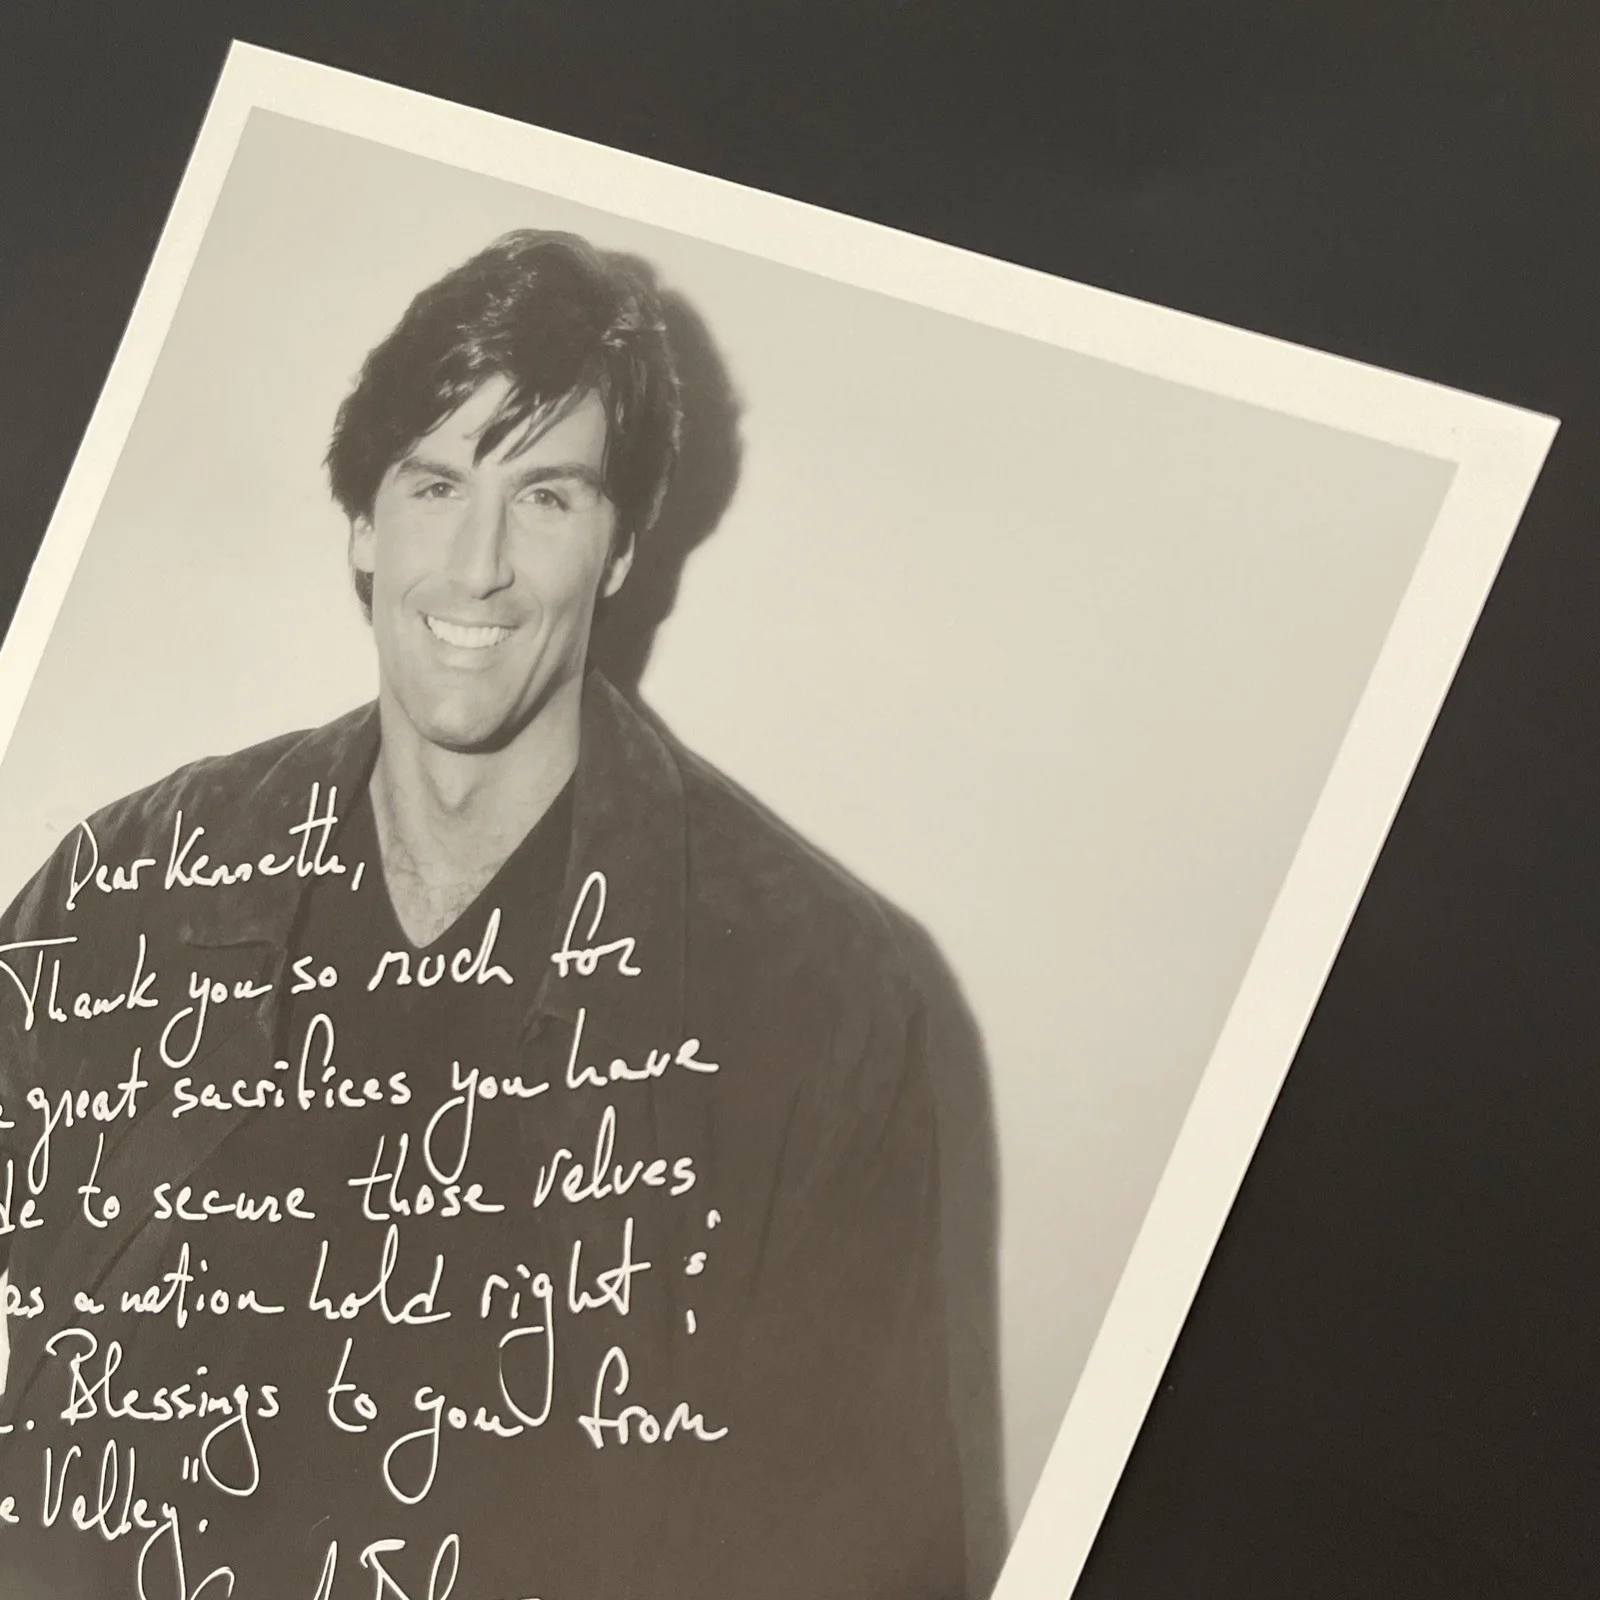 Dear Kenneth,
Thank you so much for
great sacrifices you have
to secure those velves
as a nation hold right
. Blessings to you from
Valley".